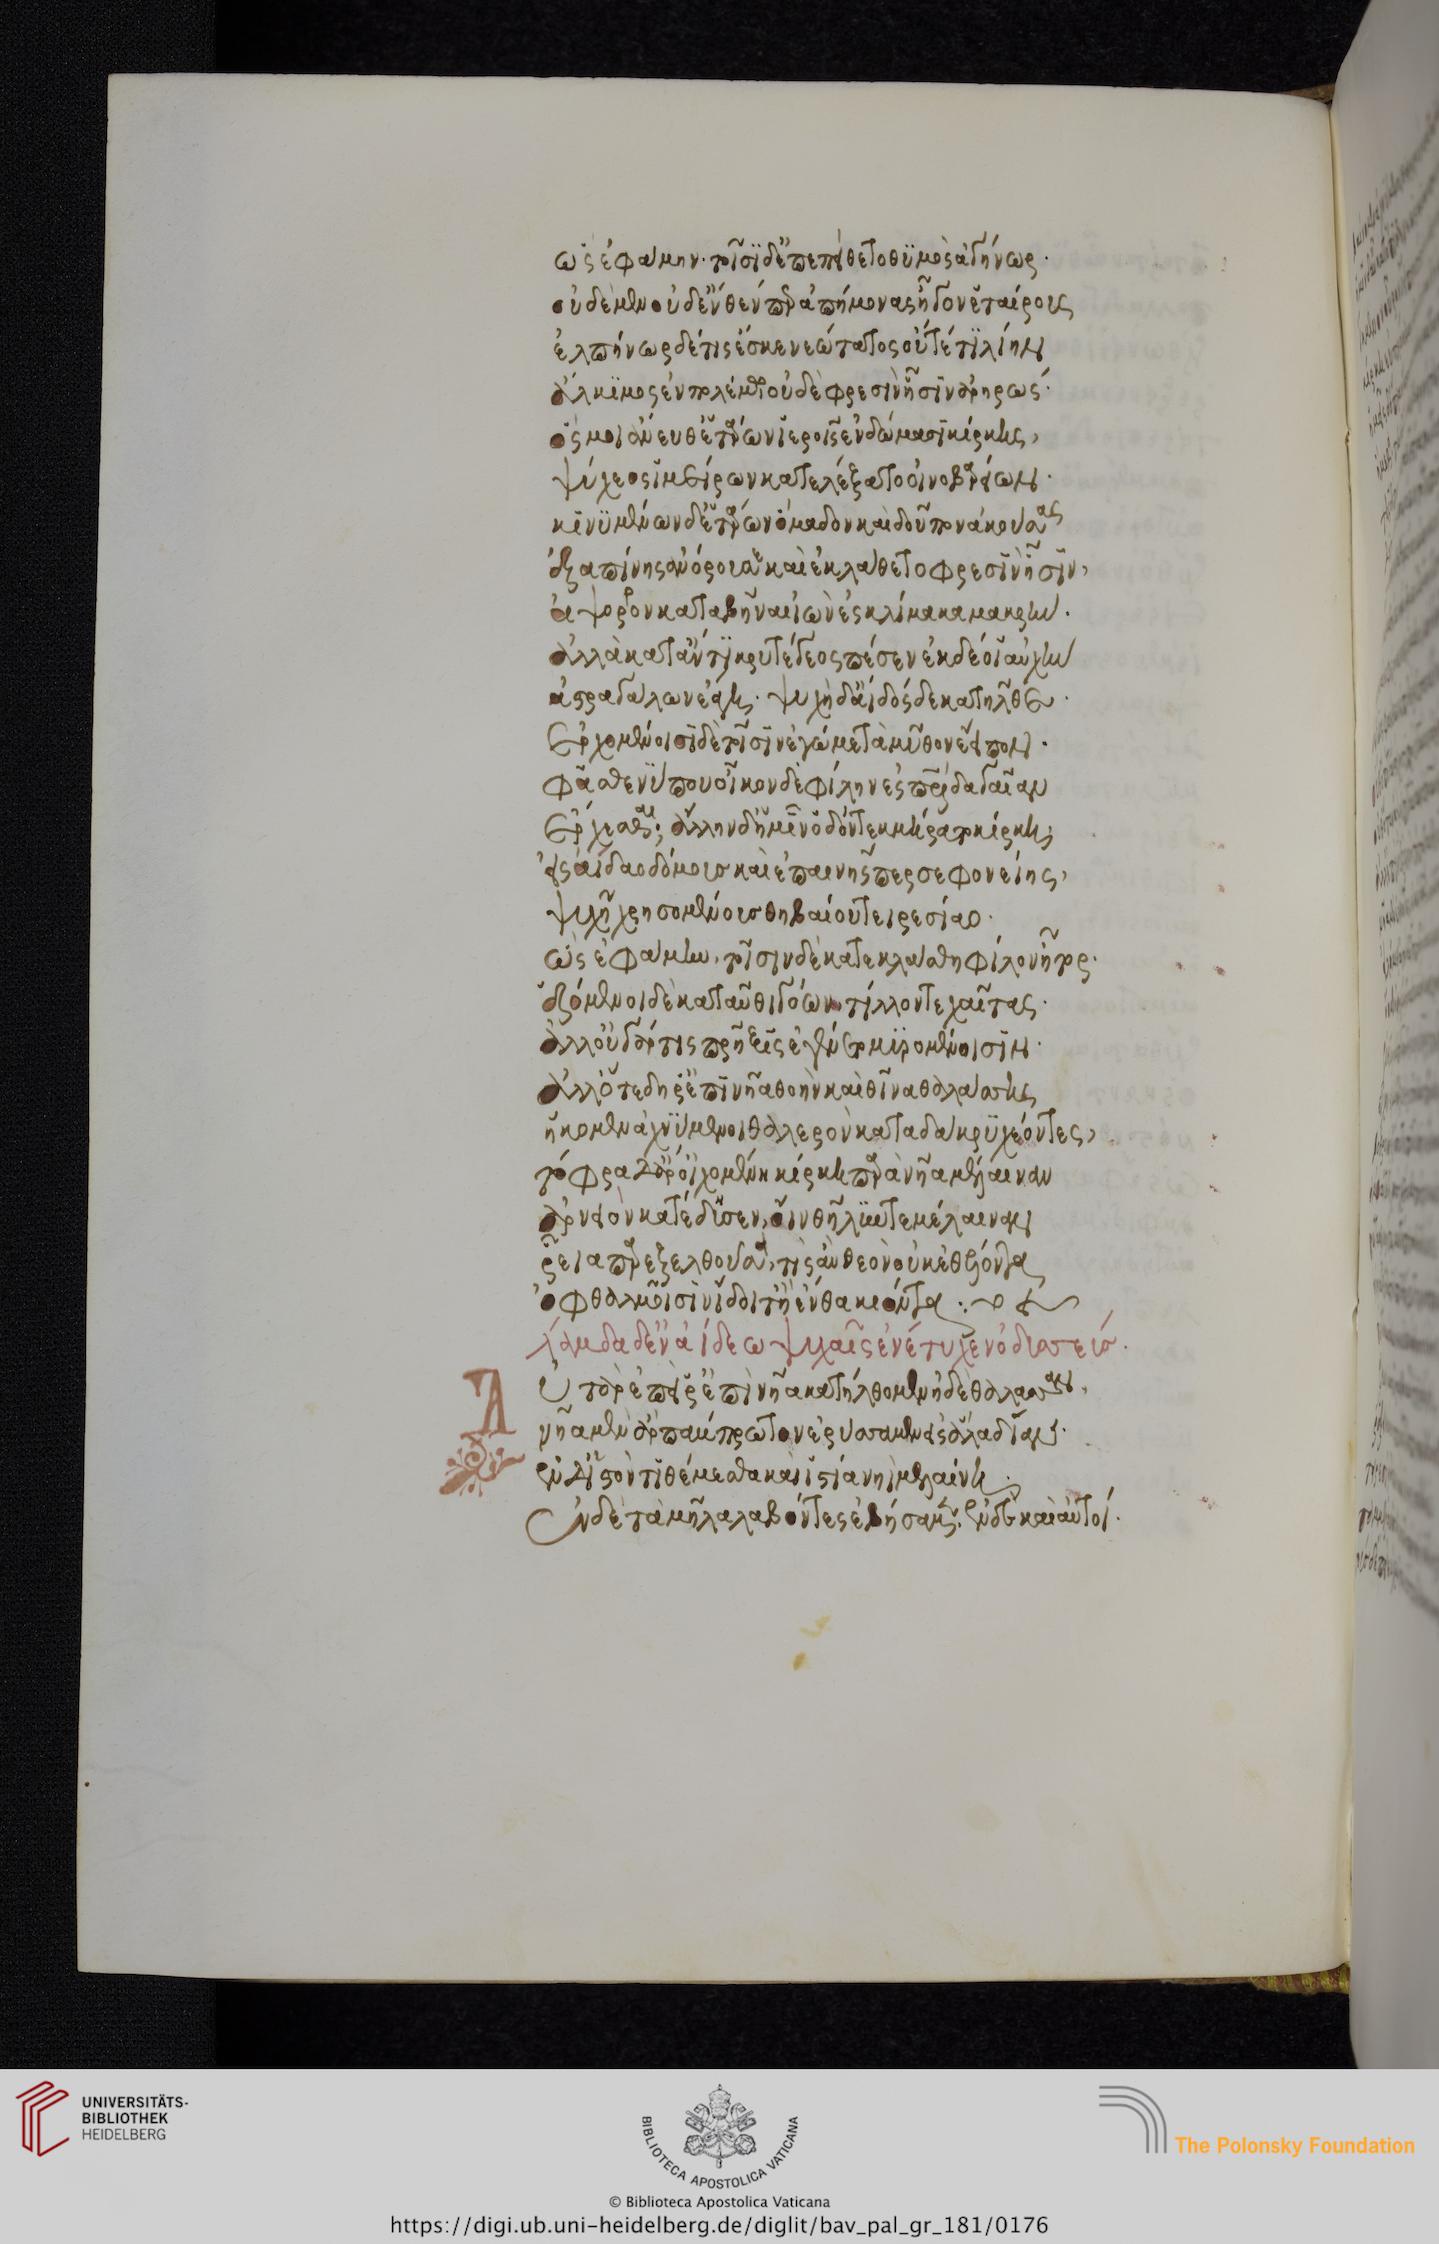 ὣς ἐφάμην· τοῖσι δ' ἐπεπείθετο θυμὸς ἀγήνωρ·
οὐδὲ μὲν οὐδ' ἔνθεν περ ἀπήμονας ἦγον ἑταίρους
ἐλπήνωρ δέ τις ἔσκε νεώτατος οὔτέ τι λίην
ἄλκιμος ἐν πολέμῳ οὐδὲ φρεσὶν ᾗσιν ἀρηρώς·
ὅς μοι ἄνευθ' ἑτάρων ἱεροῖς ἐν δώμασι κίρκης,
ψύχεος ἱμείρων κατελέξατο οἰνοβαρείων·
κινυμένων δ' ἑτάρων ὅμαδον καὶ δοῦπον ἀκούσας
ἐξαπίνης ἀνόρουσε καὶ ἐκλάθετο φρεσὶν ᾗσιν,
ἄψορρον καταβῆναι ἰὼν ἐς κλίμακα μακρὴν·
ἀλλὰ καταντικρὺ τέγεος πέσεν ἐκ δέ οἱ αὐχὴν
ἀστραγάλων ἐάγη· ψυχὴ δ' ἄϊδόςδε κατῆλθεν·
ἐρχομένοισι δὲ τοῖσιν ἐγὼ μετὰ μῦθον ἔειπον·
φᾶσθέ νύ που οἶκόνδε φίλην ἐς πατρίδα γαῖαν
ἔρχεσθαι; ἄλλην δ' ἧμιν ὁδὸν τεκμήρατο κίρκη;
εἰς ἀΐδαο δόμους καὶ ἐπαινῆς περσεφονείης,
ψυχῇ χρησομένους θηβαίου τειρεσίαο·
ὣς ἐφάμην, τοῖσιν δὲ κατεκλάσθη φίλον ἦτορ·
ἑζόμενοι δὲ κατ' αὖθι γόων τίλλοντό τε χαίτας·
ἀλλ' οὐ γάρ τις πρῆξις ἐγένετο μυρομένοισιν·
ἀλλ' ὅτε δή ῥ' ἐπὶ νῆα θοὴν καὶ θῖνα θαλάσσης
ᾔομεν ἀχνύμενοι θαλερὸν κατὰ δάκρυ χέοντες,
τόφρα δ' ἄρ' οἰχομένη κίρκη παρὰ νηῒ μελαίνῃ
ἀρνειὸν κατέδησεν, ὄϊν θῆλύν τε μέλαιναν
ῥεῖα παρεξελθοῦσα, τίς ἂν θεὸν οὐκ ἐθέλοντα
ὀφθαλμοῖσιν ἴδοιτ' ἢ ἔνθ' ἢ ἔνθα κιόντα :~
λάμβδα δ' ἐν ἀΐδεω ψυχαῖς ἐνέτυχεν ὀδυσσεύς·
Αὐτὰρ ἐπεί ῥ' ἐπὶ νῆα κατήλθομεν ἠδὲ θάλασσαν,
νῆα μὲν ἂρ πάμπρωτον ἐρύσσαμεν εἰς ἅλα δῖαν·
ἐν δ' ἱστὸν τιθέμεσθα καὶ ἱστία νηῒ μελαίνῃ·
ἐν δὲ τὰ μῆλα λαβόντες ἐβήσαμεν· ἐν δὲ καὶ αὐτοί·
UNIVERSITÄTS-
BIBLIOTHEK
HEIDELBERG
BIBLIOTECA APOSTOLICA VATICANA
The Polonsky Foundation
© Biblioteca Apostolica Vaticana
https://digi.ub.uni-heidelberg.de/diglit/bav_pal_gr_181/0176